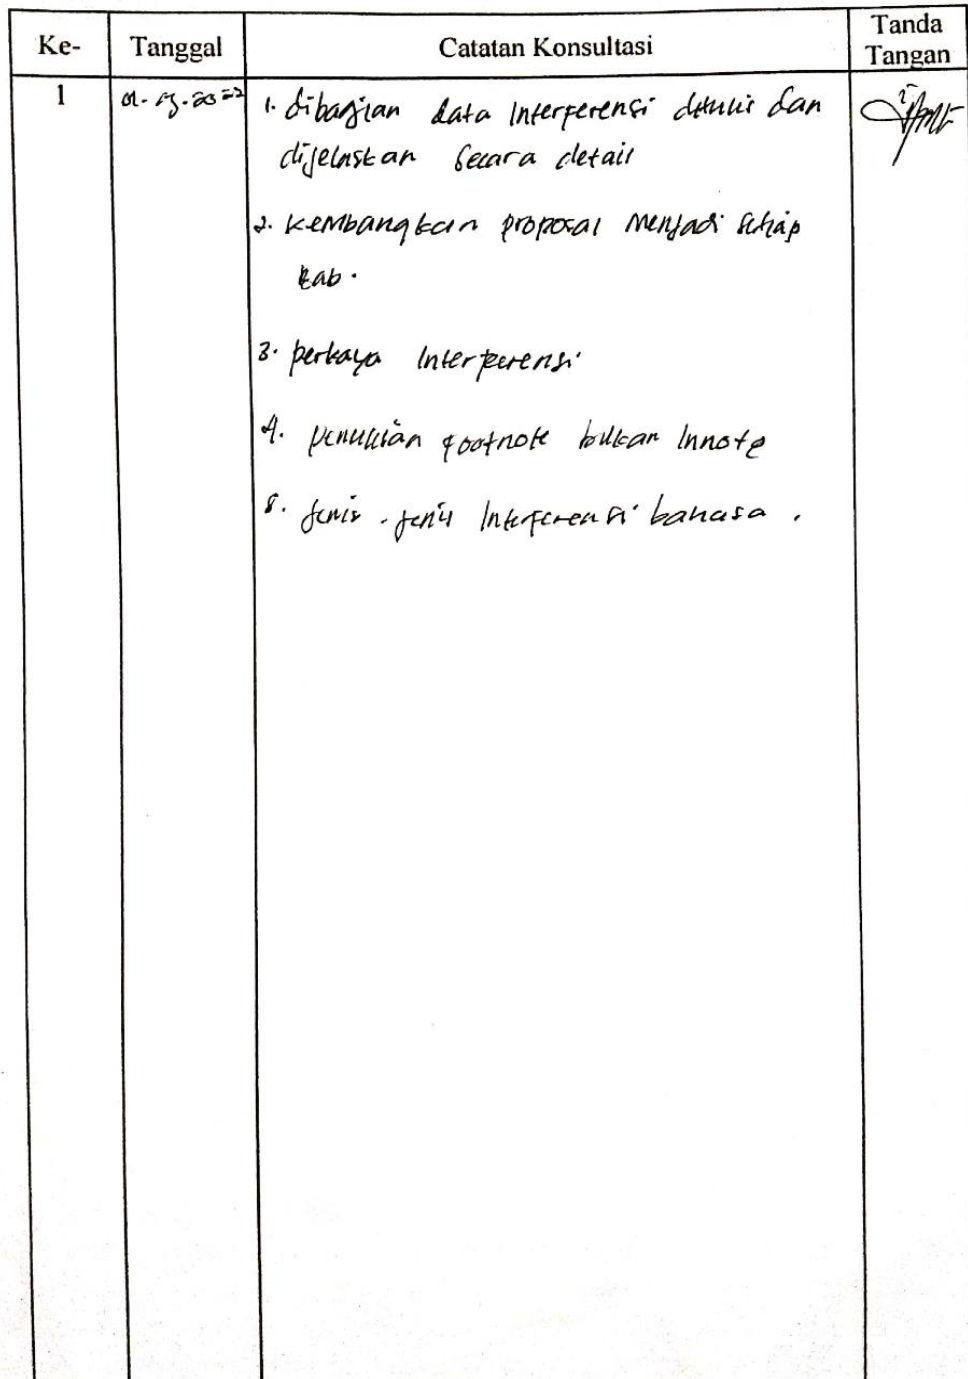 Ke- Tanggal Catatan Konsultasi Tanda Tangan
1 1. dibagian data Interferensi ditulis dan
dijelaskan secara detail
2. Kembangkan proposal menjadi setiap
bab.
3. perkaya Interferensi
4. penulisan footnote bukan Innote
5. jenis-jenis Interferensi bahasa.